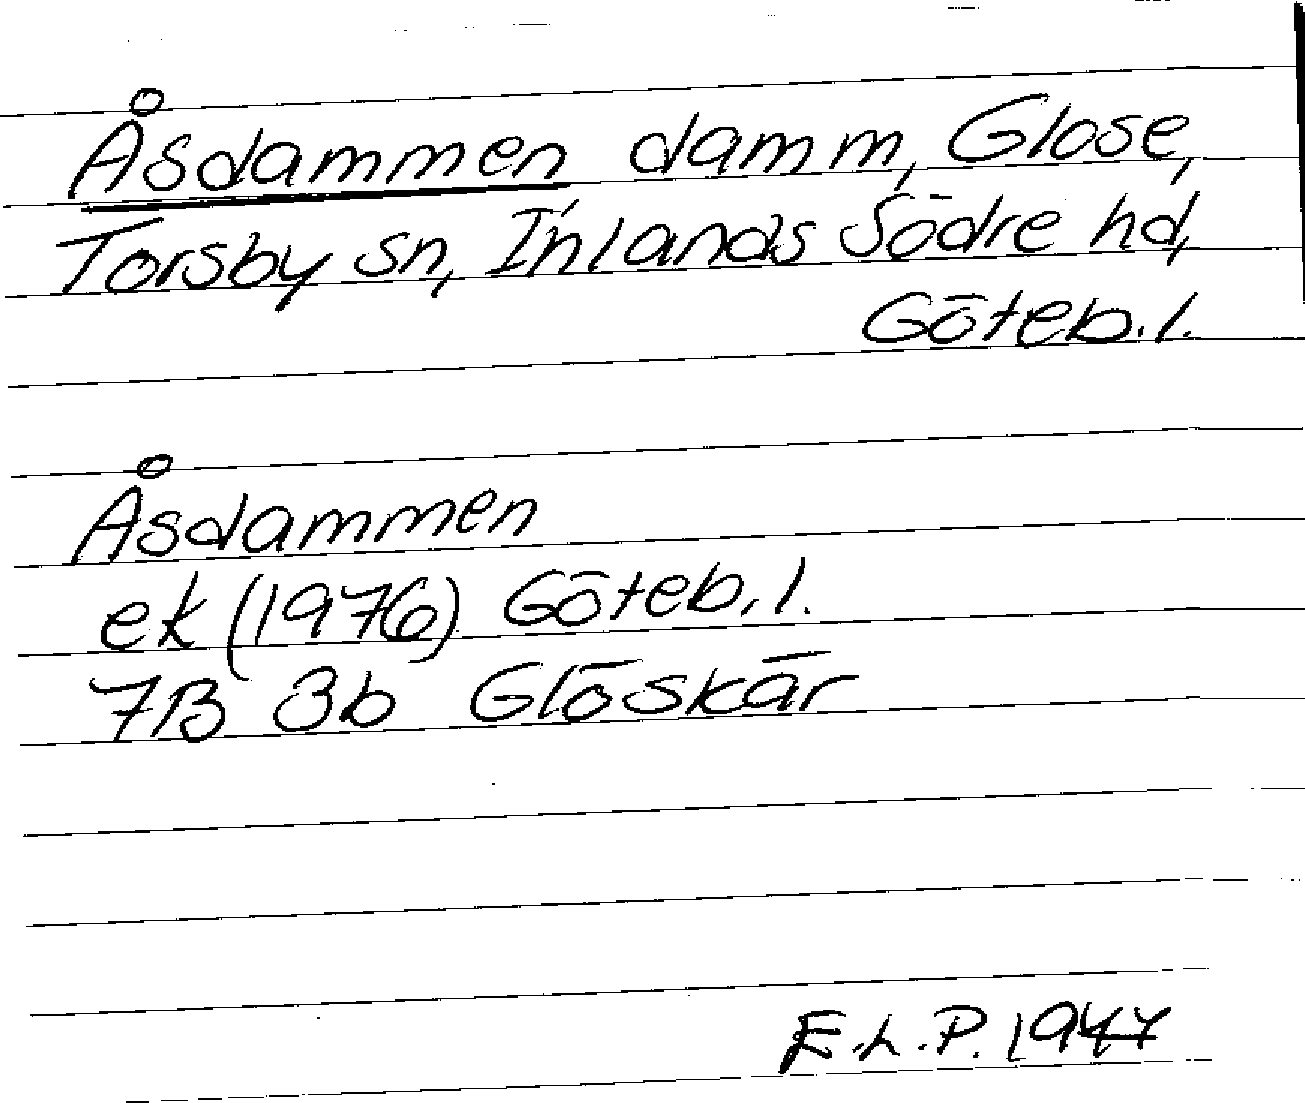 Åsdammen damm, Glose,
Torsby sn, Inlands Södre hd,
Göteb. l.
Åsdammen
ek (1976) Göteb. l.
7B 3b Glöskär
E.L.P. 1947